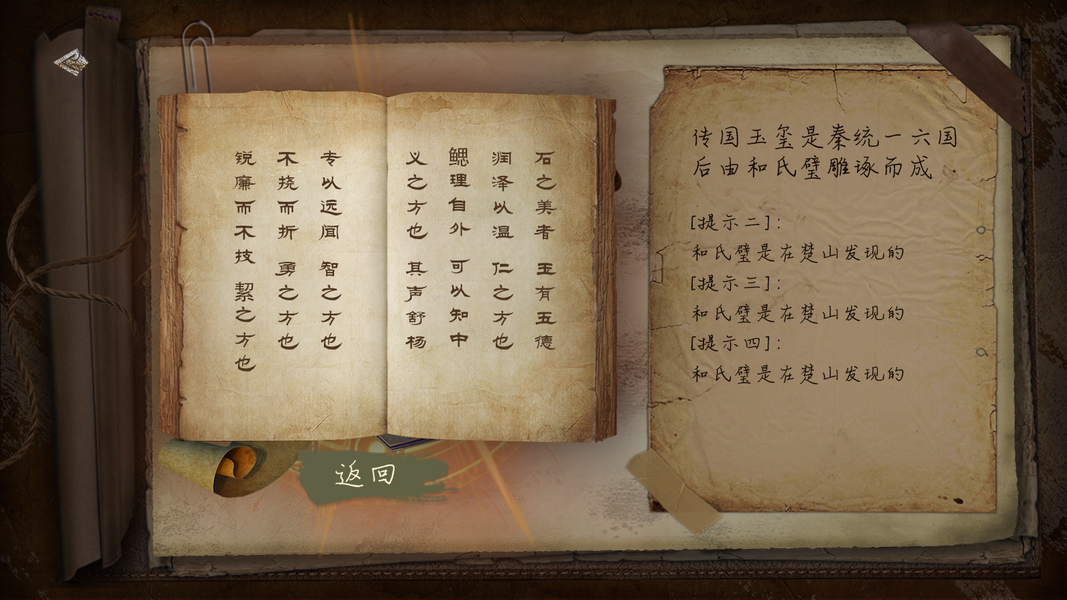 石之美者 玉有五德
润泽以温 仁之方也
鳃理自外 可以知中
义之方也 其声舒杨
专以远闻 智之方也
不挠而折 勇之方也
锐廉而不技 絜之方也
返回
传国玉玺是秦统一六国
后由和氏璧雕琢而成
[提示二]:
和氏璧是在楚山发现的
[提示三]:
和氏璧是在楚山发现的
[提示四]:
和氏璧是在楚山发现的